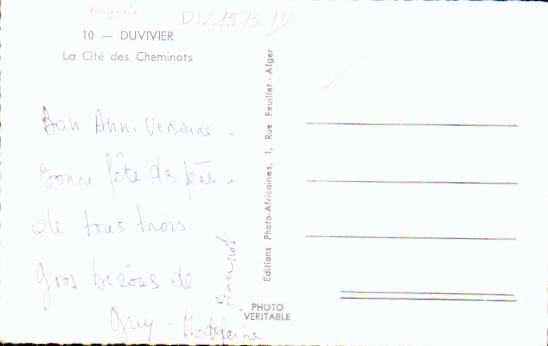 Algérie
10 — DUVIVIER
La Cité des Cheminots
Bon Anniversaire.
Bonne fête des pères.
de tous trois
Gros bisous de
Guy. Madeleine
Editions Photo-Africaines, 1, Rue Feuillet - Alger
PHOTO
VERITABLE